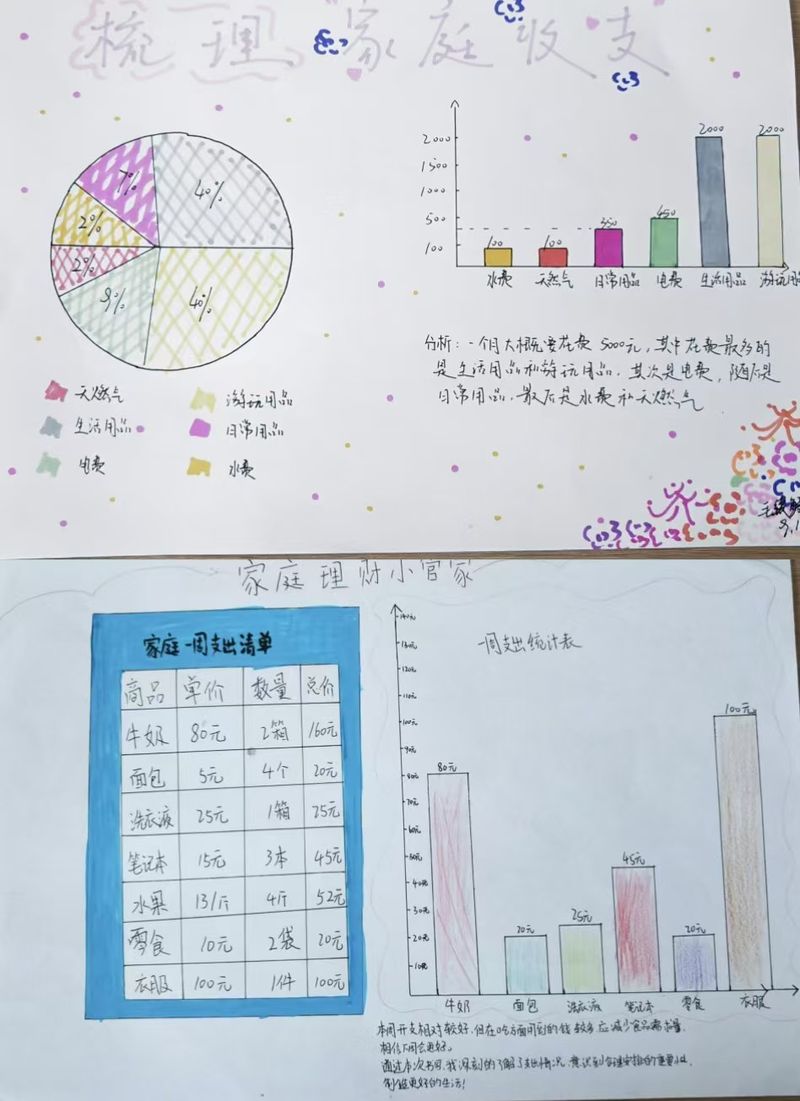 梳理家庭收支
40%
7%
2%
2%
9%
40%
天燃气
游玩用品
生活用品
日常用品
电费
水费
2000
1500
1000
500
100
100
100
350
450
2000
2000
水费
天然气
日常用品
电费
生活用品
游玩用品
分析：一个月大概要花费5000元，其中花费最多的
是生活用品和游玩用品，其次是电费，随后是
日常用品，最后是水费和天燃气
家庭理财小管家
家庭一周支出清单
商品 单价 数量 总价
牛奶 80元 2箱 160元
面包 5元 4个 20元
洗衣液 25元 1箱 25元
笔记本 15元 3本 45元
水果 13/斤 4斤 52元
零食 10元 2袋 20元
衣服 100元 1件 100元
一周支出统计表
140元
130元
120元
110元
100元
90元
80元
70元
60元
50元
40元
30元
20元
10元
80元
20元
25元
45元
20元
100元
牛奶
面包
洗衣液
笔记本
零食
衣服
本周开支相对较好，但在吃方面用到的钱较多应减少食品需求量，
相信下周会更好。
通过本次书写，我深刻的了解了支出情况，意识到合理安排的重要性，
创造更好的生活！